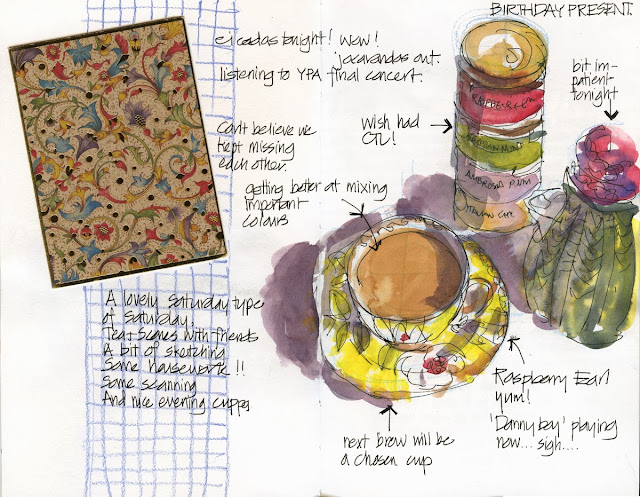 BIRTHDAY PRESENT.
cicadas tonight! Wow!
jacarandas out.
listening to YPA final concert.
bit im-
patient
tonight
Can't believe we
kept missing
each other.
wish had
CTL!
RASPBERRY
AMBROSIA PLUM
getting better at mixing
important
colours
A lovely Saturday type
of Saturday.
Tea & Scones with friends
A bit of sketching
Some housework!!
Some scanning
And nice evening cuppa
Raspberry Earl
yum!
'Danny boy' playing
now... sigh....
next brew will be
a chosen cup